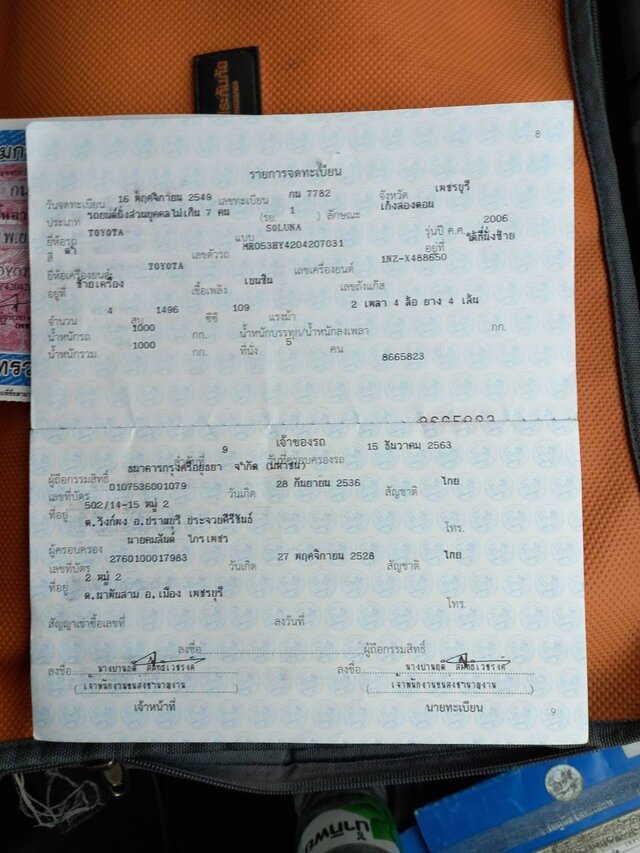 8
รายการจดทะเบียน
วันจดทะเบียน 16 พฤศจิกายน 2549 เลขทะเบียน กน 7782 จังหวัด เพชรบุรี
ประเภท รถยนต์นั่งส่วนบุคคลไม่เกิน 7 คน (รย. 1 ) ลักษณะ เก๋งสองตอน
ยี่ห้อรถ TOYOTA แบบ SOLUNA รุ่นปี ค.ศ. 2006
สี ดำ เลขตัวรถ MR053BY4204207031 อยู่ที่ ใต้ที่นั่งซ้าย
ยี่ห้อเครื่องยนต์ TOYOTA เลขเครื่องยนต์ 1NZ-X488650
อยู่ที่ ซ้ายเครื่อง เชื้อเพลิง เบนซิน เลขถังแก๊ส
จำนวน 4 สูบ 1496 ซีซี 109 แรงม้า 2 เพลา 4 ล้อ ยาง 4 เส้น
น้ำหนักรถ 1000 กก. น้ำหนักบรรทุก/น้ำหนักลงเพลา กก.
น้ำหนักรวม 1000 กก. ที่นั่ง 5 คน
8665823
8665823
เจ้าของรถ
ลำดับที่ 9 วันที่ครอบครองรถ 15 ธันวาคม 2563
ผู้ถือกรรมสิทธิ์ ธนาคารกรุงศรีอยุธยา จำกัด (มหาชน)
เลขที่บัตร 0107536001079 วันเกิด 28 กันยายน 2536 สัญชาติ ไทย
ที่อยู่ 502/14-15 หมู่ 2
ต.วังก์พง อ.ปราณบุรี ประจวบคีรีขันธ์ โทร.
ผู้ครอบครอง นายคมสันต์ ไกรเพชร
เลขที่บัตร 2760100017983 วันเกิด 27 พฤศจิกายน 2528 สัญชาติ ไทย
ที่อยู่ 2 หมู่ 2
ต.นาพันสาม อ.เมือง เพชรบุรี โทร.
สัญญาเช่าซื้อเลขที่ ลงวันที่
ลงชื่อ ผู้ถือกรรมสิทธิ์
ลงชื่อ ลงชื่อ
( เจ้าพนักงานขนส่งชำนาญงาน ) ( เจ้าพนักงานขนส่งชำนาญงาน )
เจ้าหน้าที่ นายทะเบียน
9